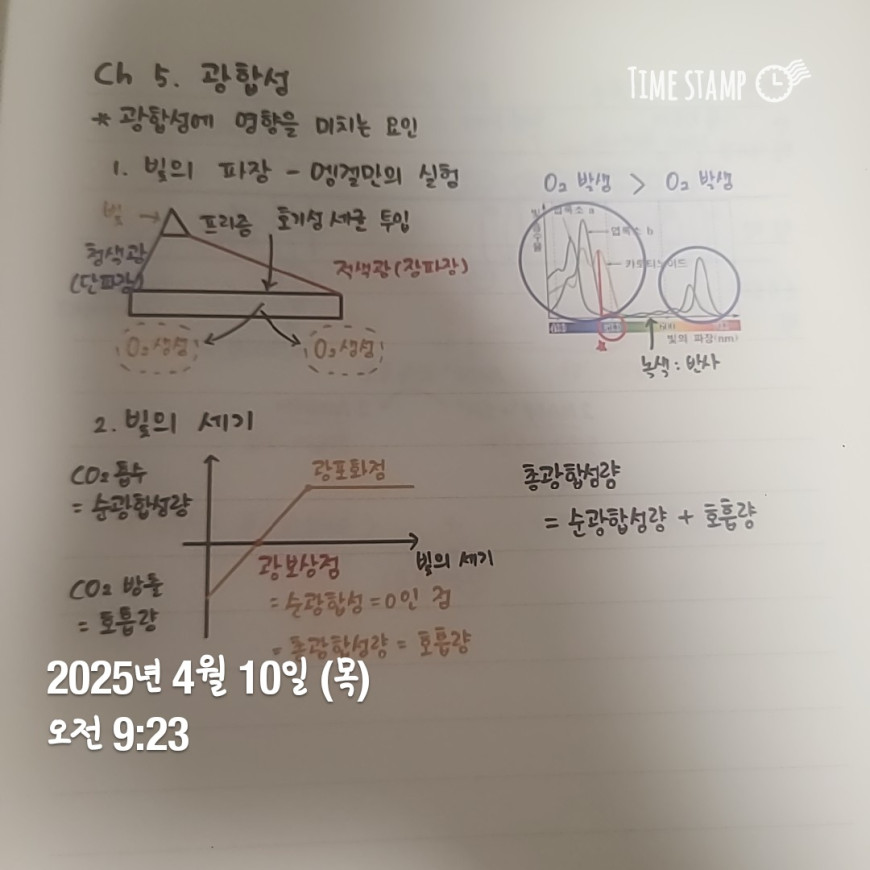 TIME STAMP
Ch 5. 광합성
* 광합성에 영향을 미치는 요인
1. 빛의 파장 - 엥겔만의 실험
빛 → 프리즘 호기성 세균 투입
청색광
(단파장)
적색광 (장파장)
O₂ 생성 O₂ 생성
O₂ 발생 > O₂ 발생
엽록소 a
엽록소 b
카로티노이드
빛의 파장(nm)
녹색 : 반사
2. 빛의 세기
CO₂ 흡수
= 순광합성량
광포화점
빛의 세기
광보상점
= 순광합성 = 0인 점
= 총광합성량 = 호흡량
CO₂ 방출
= 호흡량
총광합성량
= 순광합성량 + 호흡량
2025년 4월 10일 (목)
오전 9:23